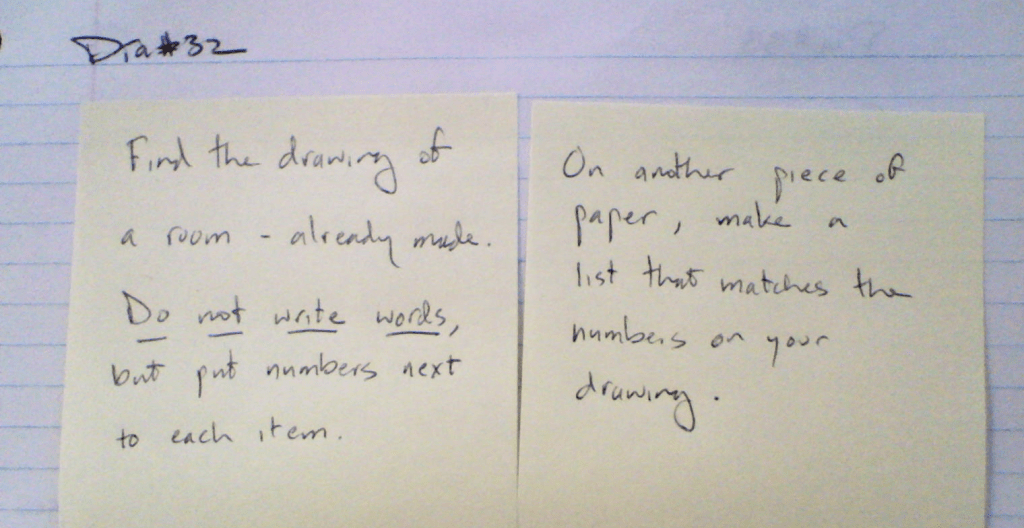 Dia #32
Find the drawing of
a room - already made.
Do not write words,
but put numbers next
to each item.
On another piece of
paper, make a
list that matches the
numbers on your
drawing.